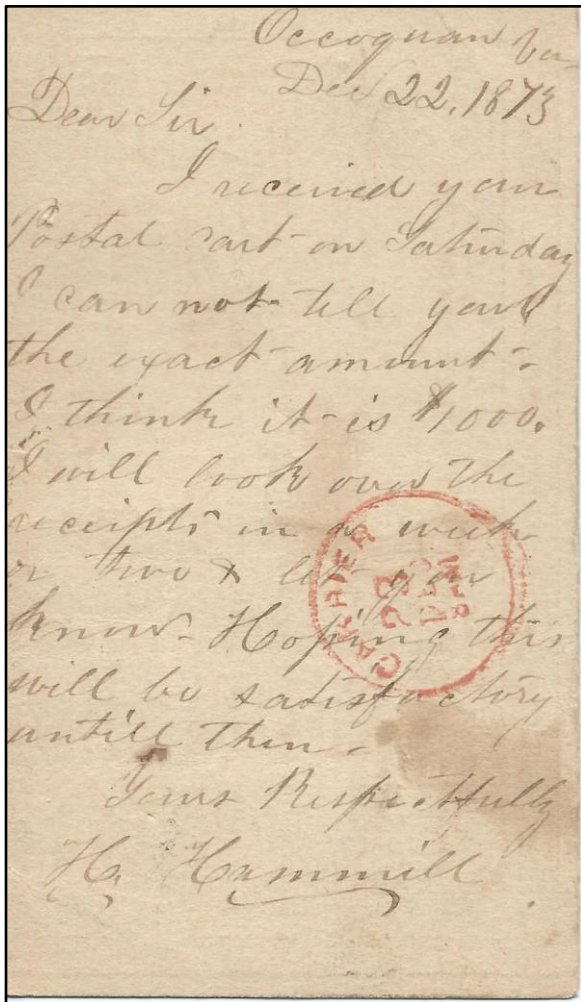 Occoquan Va
Dec 22, 1873
Dear Sir
I received your
Postal cart on Saturday
I can not tell you
the exact amount-
I think it is $1000.
I will look over the
receipts in a week
or two & let you
know- Hoping this
will be satisfactory
untill then-
Yours Respectfully
H. Hammill
CARRIER
23
DEC
8AM